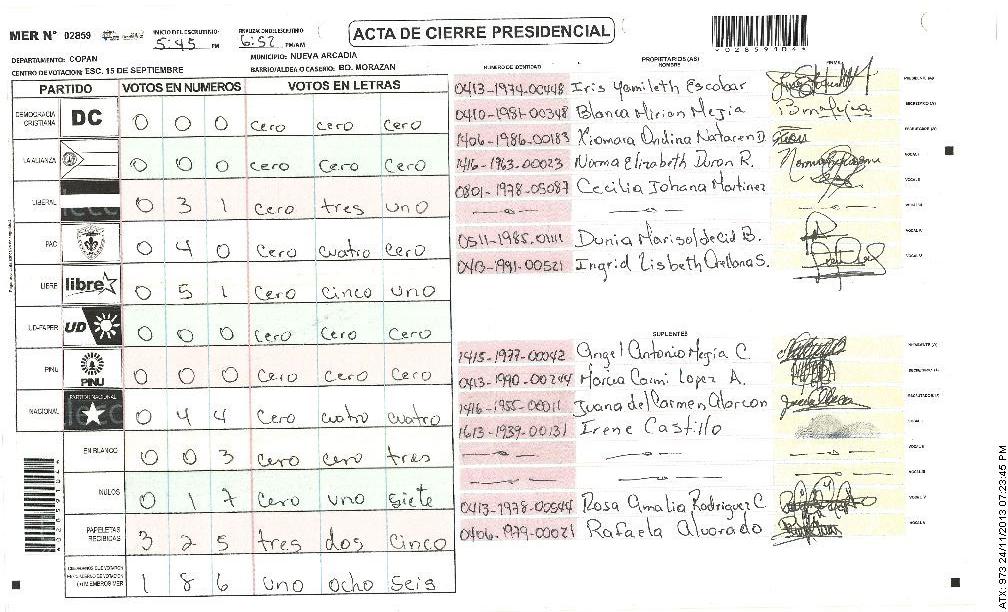 MER N° 02859
INICIO DEL ESCRUTINIO: 5:45 PM
FINALIZACION DEL ESCRUTINIO 6:52 PM/AM
ACTA DE CIERRE PRESIDENCIAL
DEPARTAMENTO: COPAN
MUNICIPIO: NUEVA ARCADIA
CENTRO DE VOTACION: ESC. 15 DE SEPTIEMBRE
BARRIO/ALDEA O CASERIO: BO. MORAZAN
PARTIDO VOTOS EN NUMEROS VOTOS EN LETRAS
DEMOCRACIA CRISTIANA DC 0 0 0 cero cero cero
LA ALIANZA 0 0 0 cero cero cero
LIBERAL 0 3 1 cero tres uno
PAC 0 4 0 cero cuatro cero
LIBRE libre 0 5 1 cero cinco uno
UD-FAPER UD 0 0 0 cero cero cero
PINU PINU 0 0 0 cero cero cero
NACIONAL PARTIDO NACIONAL 0 4 4 cero cuatro cuatro
EN BLANCO 0 0 3 cero cero tres
NULOS 0 1 7 cero uno siete
PAPELETAS RECIBIDAS 3 2 5 tres dos cinco
1 8 6 uno ocho seis
NUMERO DE IDENTIDAD PROPIETARIOS (AS) NOMBRE FIRMA
0413-1974-00448 Iris Yamileth Escobar
0410-1981-00348 Blanca Mirian Mejia
1406-1986-00183 Xiomara Ondina Nataren D.
1416-1963-00023 Norma Elizabeth Duron R.
0801-1978-05087 Cecilia Johana Martinez
0511-1985-01111 Dunia Marisol decid B.
0413-1991-00521 Ingrid Lisbeth Orellana S.
SUPLENTES
1415-1977-00042 Angel Antonio Mejia C.
0413-1990-00244 Marcia Carmi Lopez A.
1416-1955-00011 Juana del Carmen Alarcon
1613-1939-00131 Irene Castillo
0413-1978-00544 Rosa Amalia Rodriguez C
0406-1979-00021 Rafaela Alvarado
ATX: 973 24/11/2013 07:23:45 PM